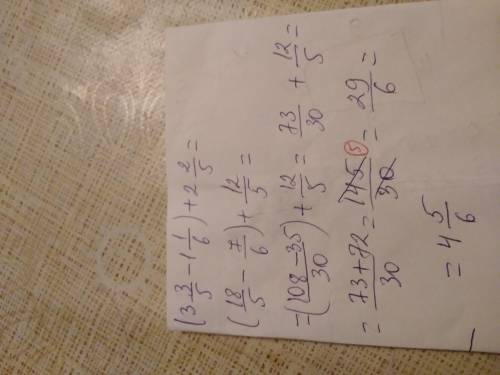 (3 3/5 - 1 1/6) + 2 2/5 =
(18/5 - 7/6) + 12/5 =
= (108-35)/30 + 12/5 = 73/30 + 12/5 =
= (73+72)/30 = 145/30 (5) = 29/6 =
= 4 5/6